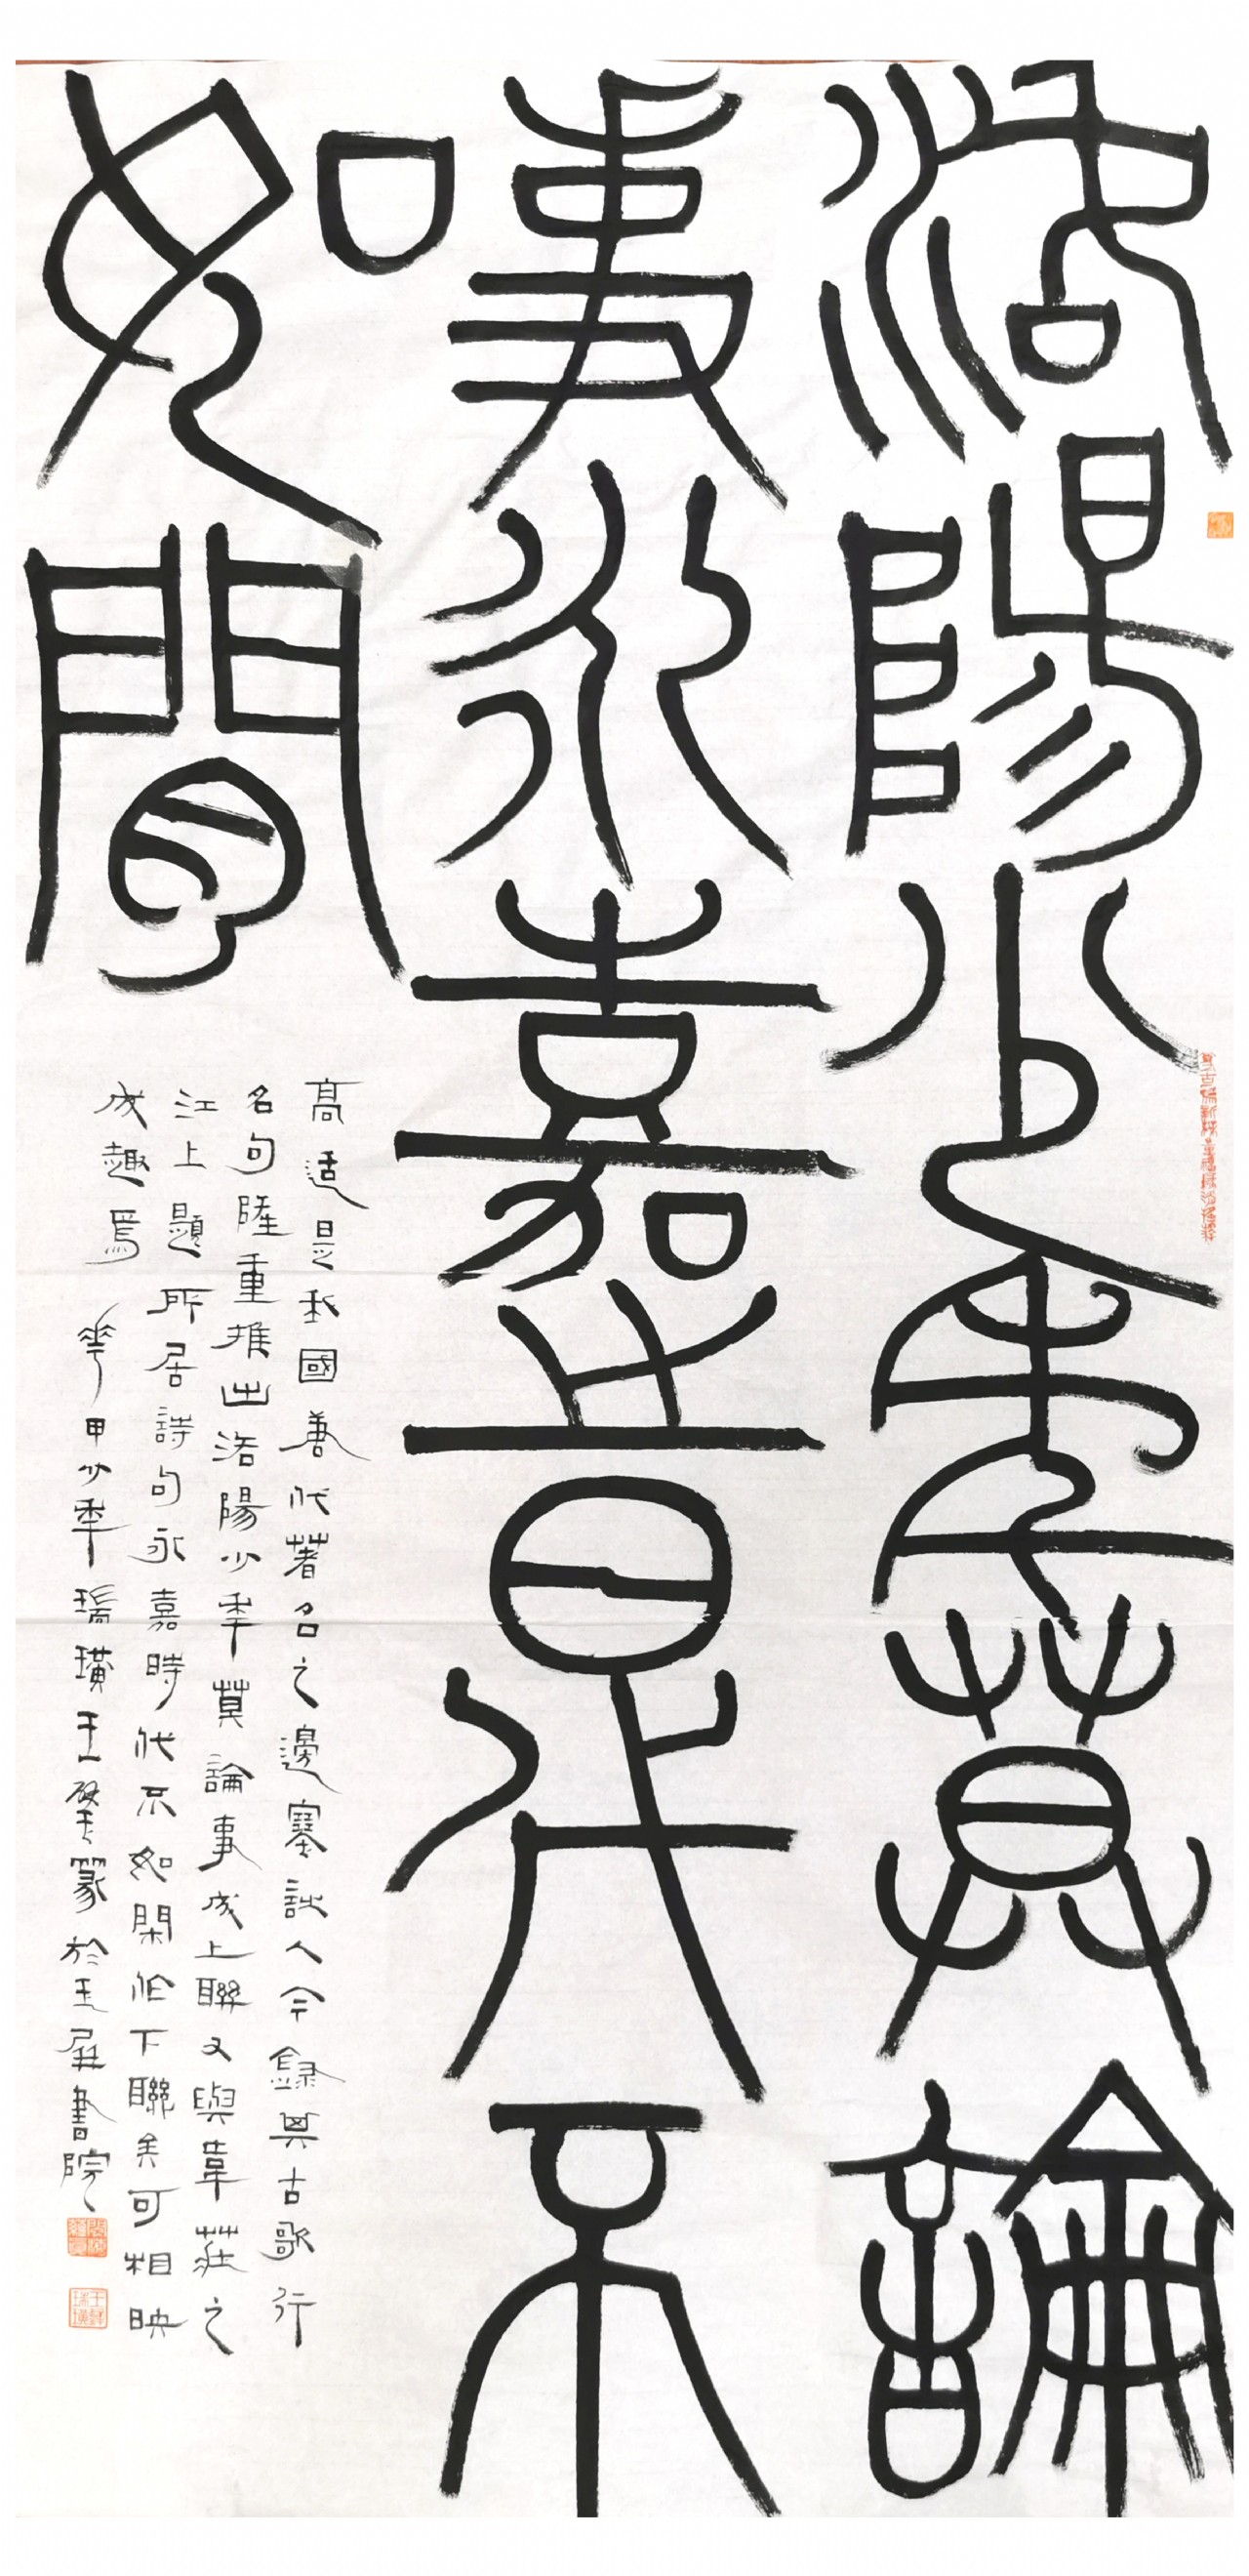 洛陽少年莫論
事永嘉時代不
如閒
高適是我國唐代著名之邊塞詩人今錄其古歌行
名句隆重推出洛陽少年莫論事成上聯又與韋莊之
江上題所居詩句永嘉時代不如閑作下聯矣可相映
成趣焉
華甲少年瑞璜王璧篆於玉屏書院